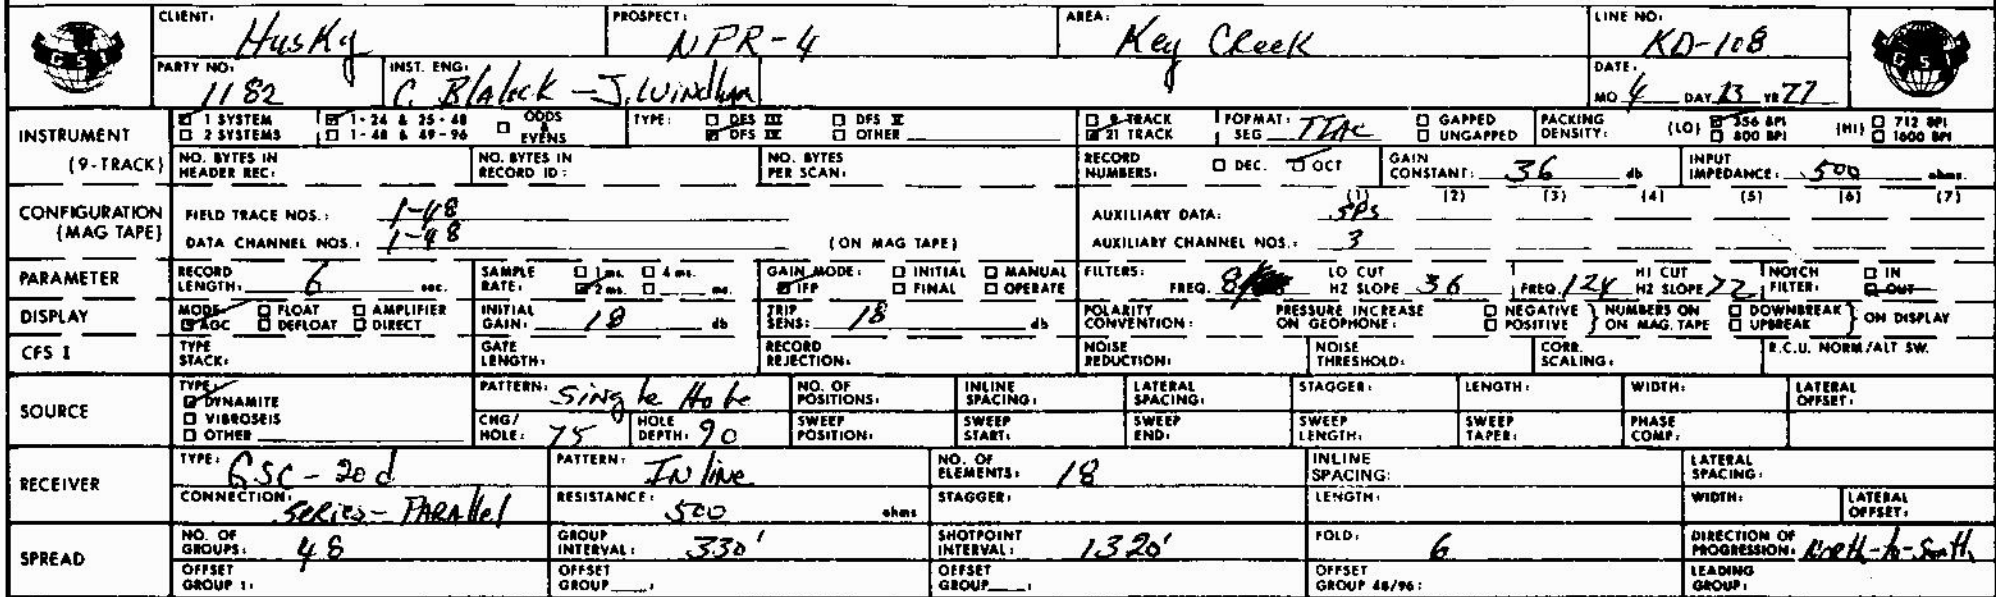 CLIENT: Husky PROSPECT: NPR-4 AREA: Key Creek LINE NO: KD-108
GSI GSI
PARTY NO: 1182 INST. ENG: C. Blalock - J. Windham DATE: MO 4 DAY 13 YR 77
INSTRUMENT 1 SYSTEM 1-24 & 25-48 ODDS & EVENS TYPE: DFS III DFS V 9 TRACK FORMAT: SEG TIAC GAPPED PACKING DENSITY: (LO) 356 BPI (HI) 712 BPI
2 SYSTEMS 1-48 & 49-96 DFS IV OTHER 21 TRACK UNGAPPED 800 BPI 1600 BPI
(9-TRACK) NO. BYTES IN HEADER REC: NO. BYTES IN RECORD ID: NO. BYTES PER SCAN: RECORD NUMBERS: DEC. OCT GAIN CONSTANT: 36 db INPUT IMPEDANCE: 500 ohms.
CONFIGURATION (MAG TAPE) FIELD TRACE NOS.: 1-48 AUXILIARY DATA: (1) SPS (2) (3) (4) (5) (6) (7)
DATA CHANNEL NOS.: 1-48 (ON MAG TAPE) AUXILIARY CHANNEL NOS.: 3
PARAMETER RECORD LENGTH: 6 sec. SAMPLE RATE: 1 ms. 4 ms. 2 ms. ms. GAIN MODE: INITIAL MANUAL IFP FINAL OPERATE FILTERS: FREQ. 8 LO CUT HZ SLOPE 36 FREQ. 124 HI CUT HZ SLOPE 72 NOTCH FILTER: IN OUT
DISPLAY MODE: FLOAT AMPLIFIER AGC DEFLOAT DIRECT INITIAL GAIN: 18 db TRIP SENS: 18 db POLARITY CONVENTION: PRESSURE INCREASE ON GEOPHONE: NEGATIVE POSITIVE NUMBERS ON MAG. TAPE DOWNBREAK UPBREAK ON DISPLAY
CFS I TYPE STACK: GATE LENGTH: RECORD REJECTION: NOISE REDUCTION: NOISE THRESHOLD: CORR. SCALING: R.C.U. NORM/ALT SW.
SOURCE TYPE: DYNAMITE VIBROSEIS OTHER PATTERN: Single Hole NO. OF POSITIONS: INLINE SPACING: LATERAL SPACING: STAGGER: LENGTH: WIDTH: LATERAL OFFSET:
CHG/HOLE: 75 HOLE DEPTH: 90 SWEEP POSITION: SWEEP START: SWEEP END: SWEEP LENGTH: SWEEP TAPER: PHASE COMP:
RECEIVER TYPE: GSC-20d PATTERN: Inline NO. OF ELEMENTS: 18 INLINE SPACING: LATERAL SPACING:
CONNECTION: Series-Parallel RESISTANCE: 500 ohms STAGGER: LENGTH: WIDTH: LATERAL OFFSET:
SPREAD NO. OF GROUPS: 48 GROUP INTERVAL: 330' SHOTPOINT INTERVAL: 1320' FOLD: 6 DIRECTION OF PROGRESSION: North-to-South
OFFSET GROUP 1: OFFSET GROUP : OFFSET GROUP : OFFSET GROUP 48/96: LEADING GROUP: